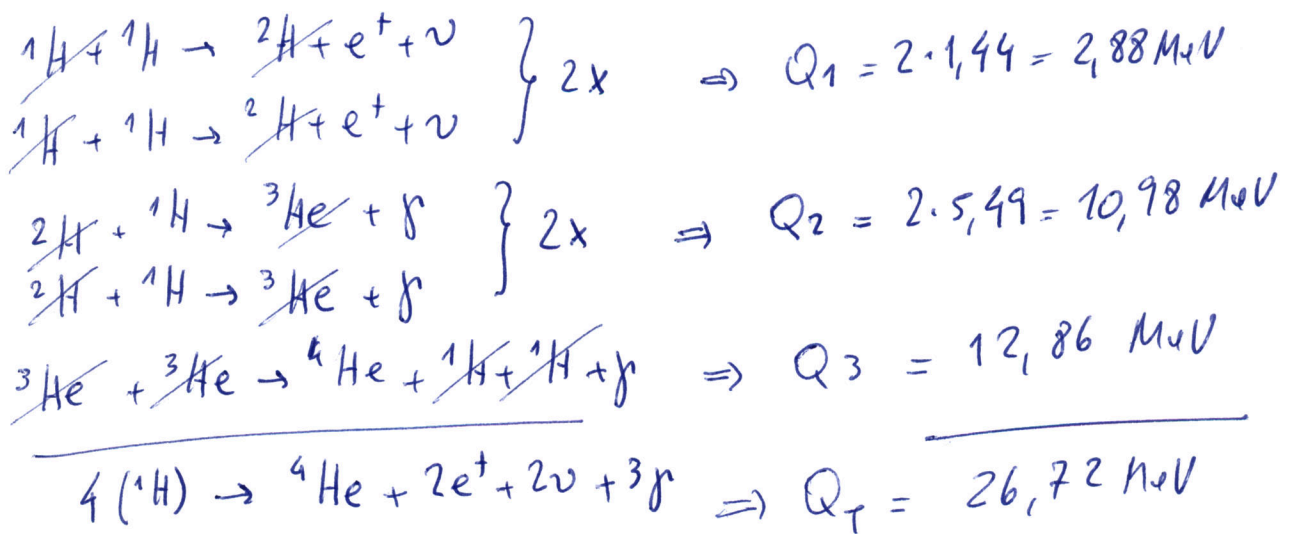 ¹H + ¹H → ²H + e⁺ + ν } 2x ⇒ Q1 = 2·1,44 = 2,88 MeV
¹H + ¹H → ²H + e⁺ + ν
²H + ¹H → ³He + γ } 2x ⇒ Q2 = 2·5,49 = 10,98 MeV
²H + ¹H → ³He + γ
³He + ³He → ⁴He + ¹H + ¹H + γ ⇒ Q3 = 12,86 MeV
4(¹H) → ⁴He + 2e⁺ + 2ν + 3γ ⇒ Q_T = 26,72 MeV